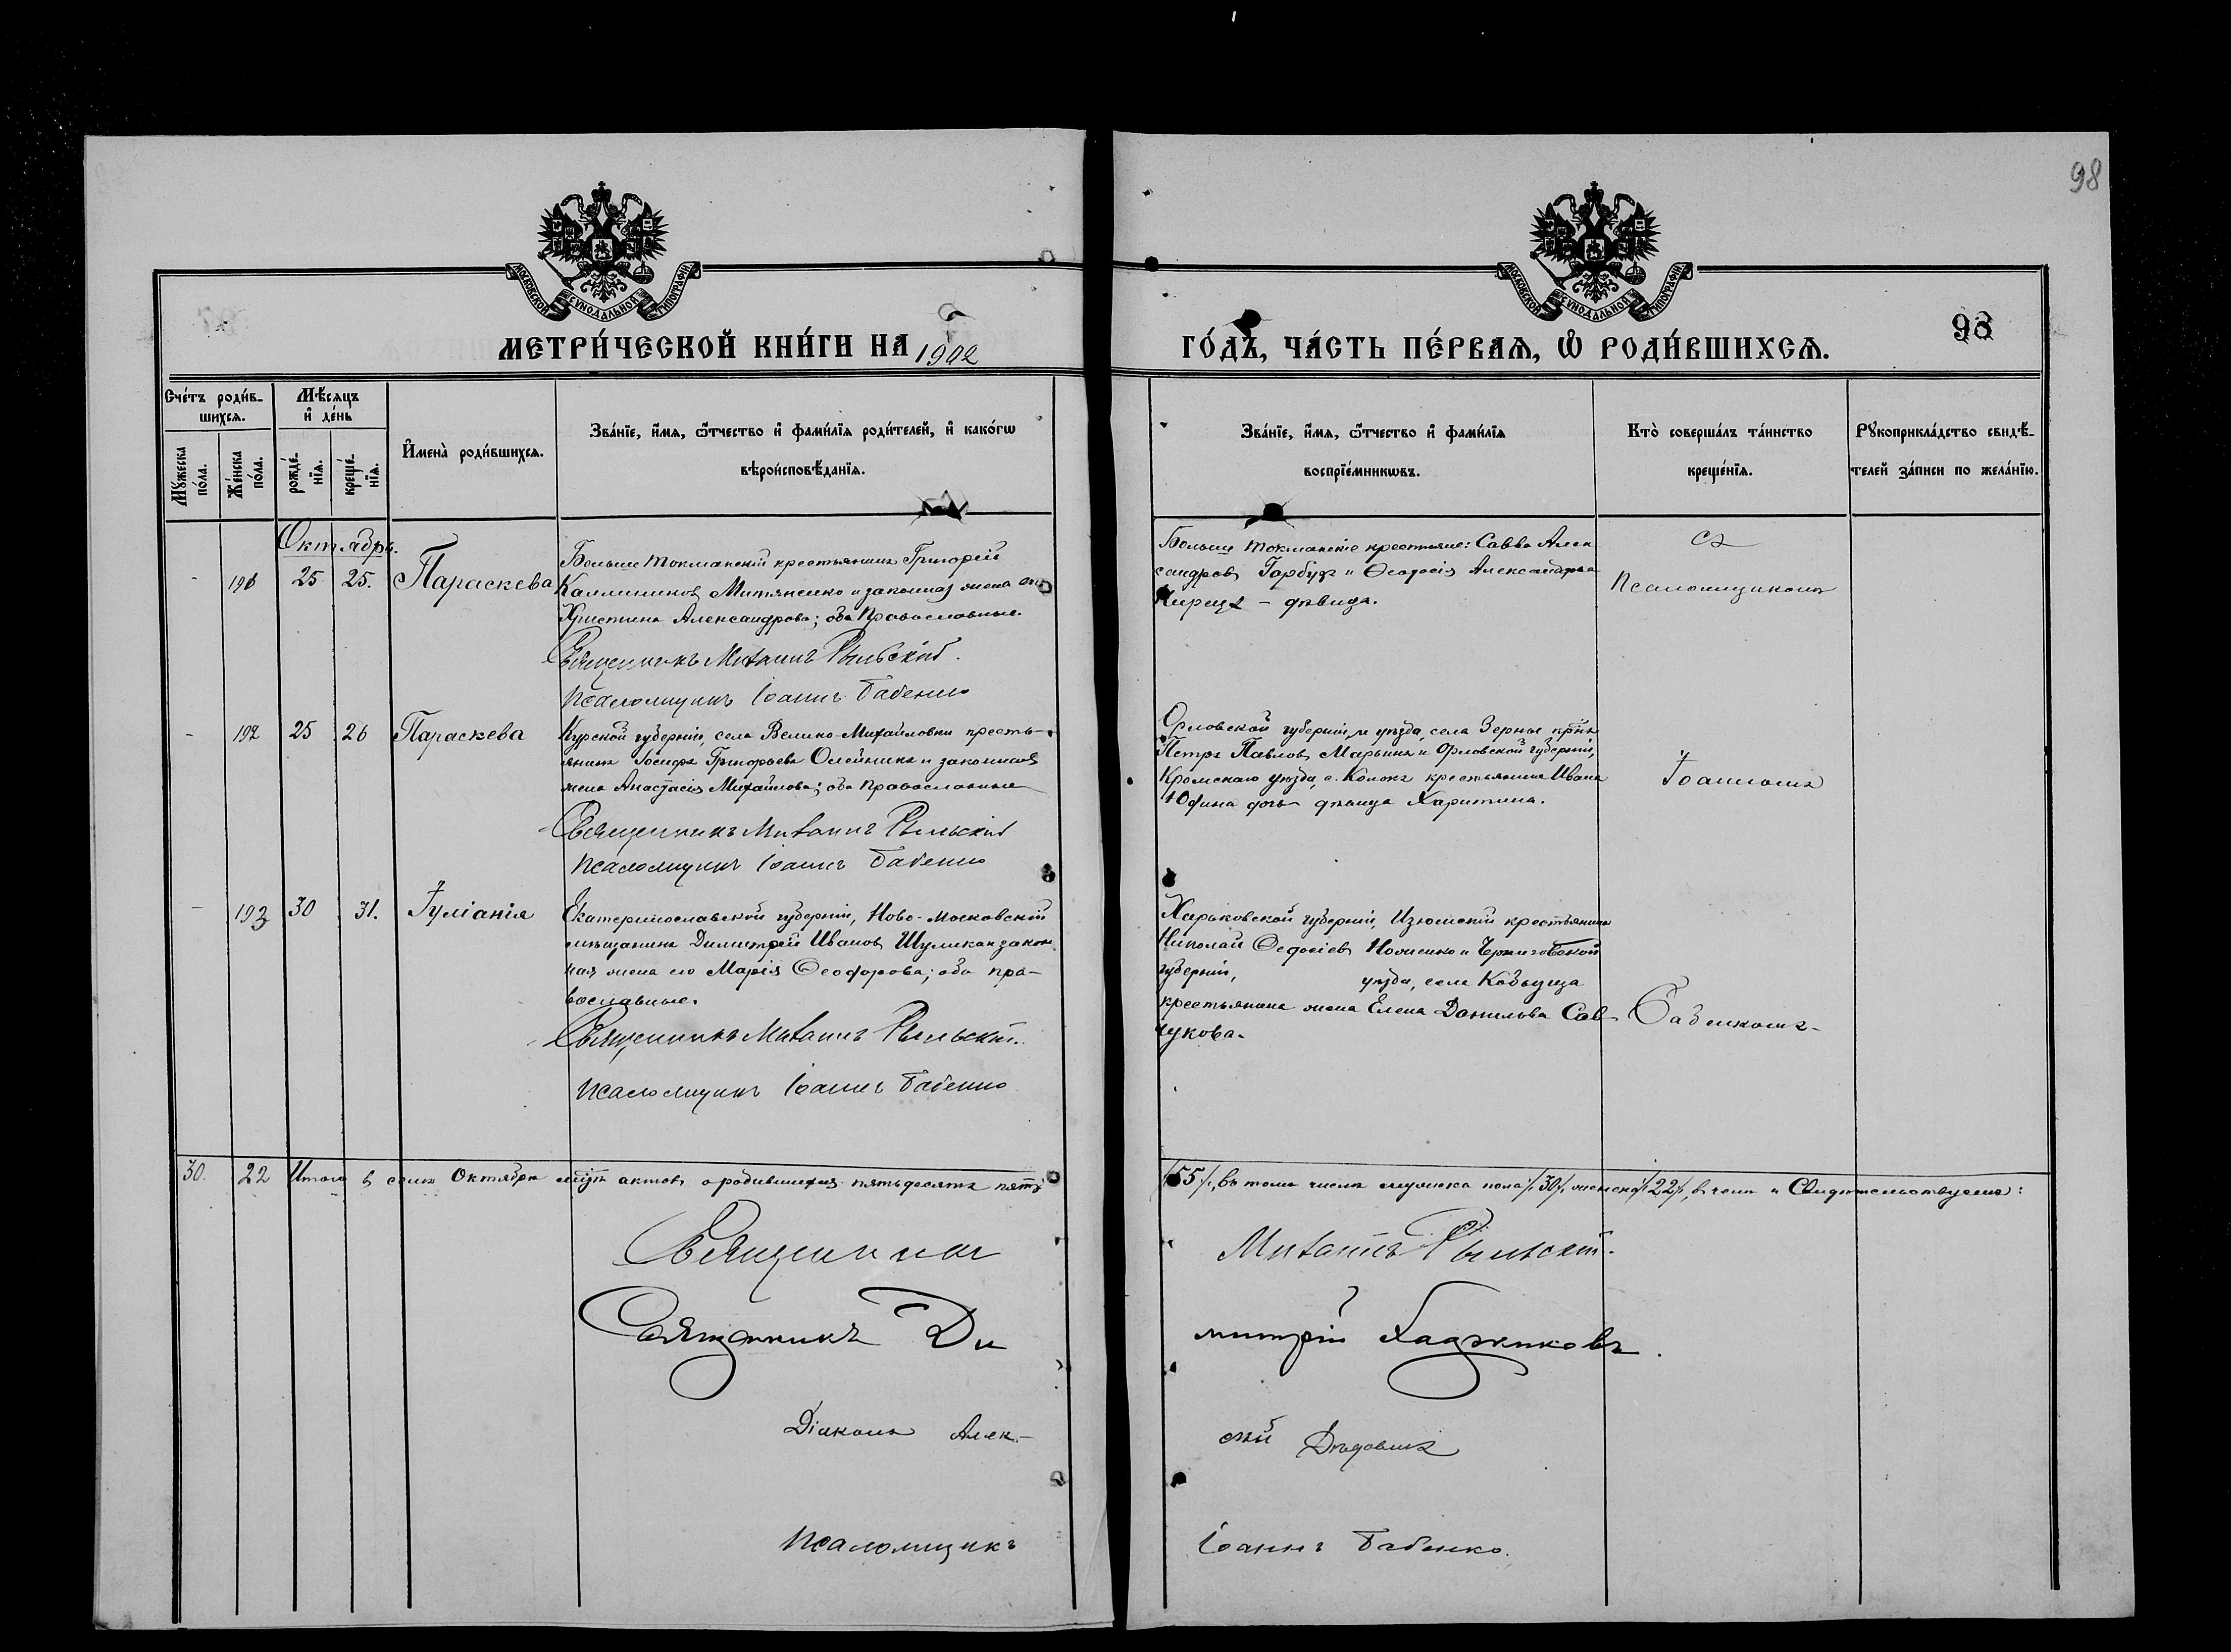 98
МОСКОВСКОЙ СУНОДАЛЬНОЙ ТИПОГРАФІИ
МОСКОВСКОЙ СУНОДАЛЬНОЙ ТИПОГРАФІИ
МЕТРИ́ЧЕСКОЙ КНИ́ГИ НА 1902
ГО́ДЪ, ЧА́СТЬ ПЕ́РВАѦ, Ѡ҆ РОДИ́ВШИХСѦ.
98
Сче́тъ роди́в-
шихсѧ.
Мѣ́сѧцъ
и҆ де́нь
Мꙋ́жеска
по́ла.
Же́нска
по́ла.
рожде́-
нїѧ.
креще́-
нїѧ.
И҆мена̀ роди́вшихсѧ.
Зва́нїе, и҆́мѧ, ѻ҆́тчество и҆ фами́лїѧ роди́телей, и҆ како́гѡ
вѣроисповѣ́данїѧ.
Зва́нїе, и҆́мѧ, ѻ҆́тчество и҆ фами́лїѧ
воспрїе́мникѡвъ.
Кто̀ соверша́лъ та́инство
креще́нїѧ.
Рꙋкоприкла́дство свидѣ́-
телей за́писи по жела́нїю.
Октябрь.
- 191 25 25. Параскева
Больше Токмакскій крестьянинъ Григорій
Каллиниковъ Митяненко и законная жена его
Христина Александрова; оба Православные.
Священникъ Михаилъ Рыльскій.
Псаломщикъ Іоаннъ Бабенко
Больше Токмакскіе крестьяне: Савва Алек
сандровъ Горбузъ и Ѳеодосія Александрова
– дѣвица.
Съ
Псаломщикомъ
- 192 25 26 Параскева
Курской губерніи, села Велико-Михайловки кресть-
янинъ Іосифъ Григорьевъ Олейникъ и законная
жена Анастасія Михайлова; оба Православные
Священникъ Михаилъ Рыльскій
Псаломщикъ Іоаннъ Бабенко
Орловской губерніи, и уѣзда, села
Петръ Павловъ Марьинъ и Орловской губерніи,
Кромскаго уѣзда, с. крестьянина Ивана
Юдина дочь дѣвица Харитина.
Іоанномъ
- 193 30 31. Іуліанія
Екатеринославской губерніи, Ново-Московскій
мѣщанинъ Димитрій Ивановъ Шулика и закон
ная жена его Марія Ѳеодорова; оба пра-
вославные.
Священникъ Михаилъ Рыльскій.
Псаломщикъ Іоаннъ Бабенко
Харьковской губерніи, Изюмскій крестьянинъ
Николай и Черниговской
губерніи, уѣзда, села Кобыжча
крестьянина жена Елена Данилова Сав-
чукова.
Бабенкомъ-
30. 22 Итого въ семъ Октябрѣ мцѣ актовъ о родившихся пятьдесятъ пять
/55/, въ томъ числѣ мужеска пола /30/, женска /22/, въ чемъ и Свидѣтельствуемъ:
Священникъ Михаилъ Рыльскій.
Священникъ Ди
митрій Хаджиковъ.
Діаконъ Алек-
сѣй
Псаломщикъ Іоаннъ Бабенко.